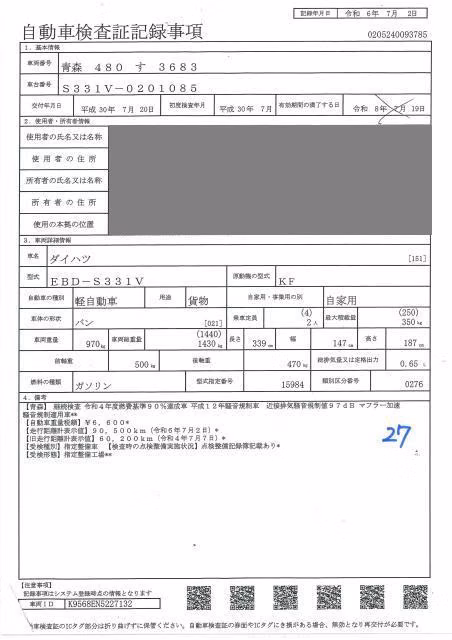 記録年月日 令和 6年 7月 2日
自動車検査証記録事項
0205240093785
1．基本情報
車両番号 青森 480 す 3683
車台番号 S331V-0201085
交付年月日 平成 30年 7月 20日 初度検査年月 平成 30年 7月 有効期間の満了する日 令和 8年 7月 19日
2．使用者・所有者情報
使用者の氏名又は名称
使用者の住所
所有者の氏名又は名称
所有者の住所
使用の本拠の位置
3．車両詳細情報
車名 ダイハツ [151]
型式 EBD-S331V 原動機の型式 KF
自動車の種別 軽自動車 用途 貨物 自家用・事業用の別 自家用
車体の形状 バン [021] 乗車定員 (4) 2人 最大積載量 (250) 350kg
車両重量 970kg 車両総重量 (1440) 1430kg 長さ 339cm 幅 147cm 高さ 187cm
前軸重 500kg 後軸重 470kg 総排気量又は定格出力 0.65 L
燃料の種類 ガソリン 型式指定番号 15984 類別区分番号 0276
4．備考
[青森] 継続検査 令和4年度燃費基準90%達成車 平成12年騒音規制車 近接排気騒音規制値97dB マフラー加速
騒音規制適用車**
[自動車重量税額] ¥6,600*
[走行距離計表示値] 90,500km (令和6年7月2日)*
[旧走行距離計表示値] 60,200km (令和4年7月7日)*
[受検種別] 指定整備車 [検査時の点検整備実施状況] 点検整備記録簿記載あり*
[受検形態] 指定整備工場**
27
【注意事項】
記録事項はシステム登録時点の情報となります
車両ID K9568EN5227132
自動車検査証のICタグ部分は折り曲げずに保管ください。自動車検査証の券面やICタグにき損がある場合、無効となり再交付が必要です。